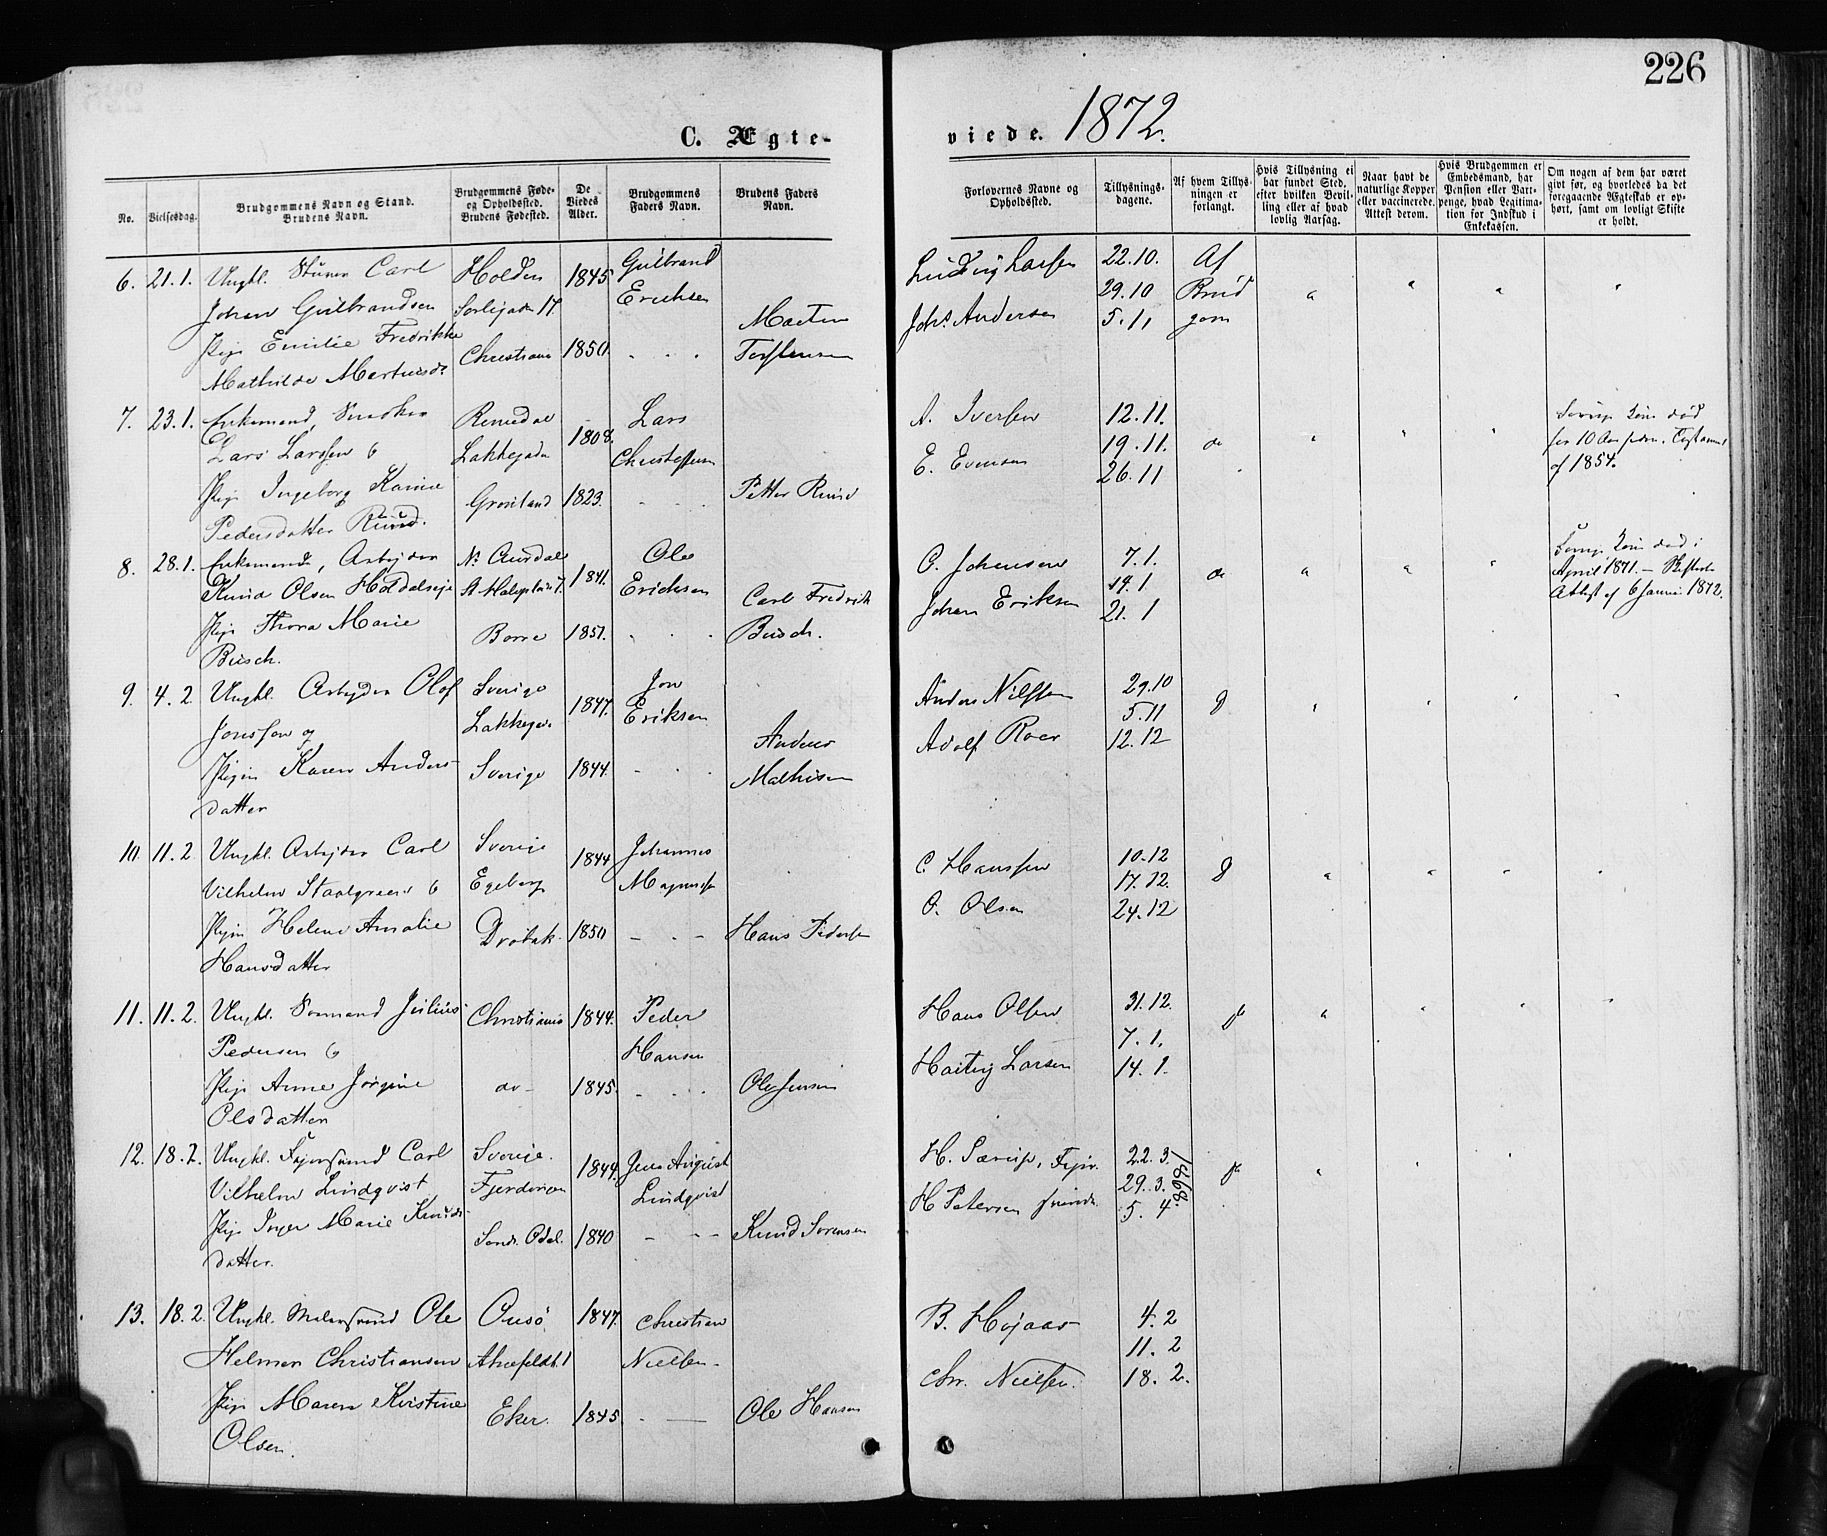 226
C. Ægte-
viede. 1872.
No.
Vielsesdag.
Brudgommens Navn og Stand.
Brudens Navn.
Brudgommens Føde-
og Opholdssted.
Brudens Fødested.
De
Viedes
Alder.
Brudgommens
Faders Navn.
Brudens Faders
Navn.
Forlovernes Navne og
Opholdssted.
Tillysnings-
dagene.
Af hvem Tillys-
ningen er
forlangt.
Hvis Tillysning ei
har fundet Sted,
efter hvilken Bevil-
ling eller af hvad
lovlig Aarsag.
Naar havt de
naturlige Kopper
eller vaccinerede.
Attest derom.
Hvis Brudgommen er
Embedsmand, har
Pension eller Vart-
penge, hvad Legitima-
tion for Indskud i
Enkekassen.
Om nogen af dem har været
givt før, og hvorledes da det
foregaaende Ægteskab er op-
hørt, samt om lovligt Skifte
er holdt.
6. 21.1. Ungkl. Carl Holden 1845 Gulbrand Ludvig Larsen 22.10. Af
Johan Gulbrandsen 17 Ericksen 29.10 Brud
Pige Emilie Fredrikke Christiania 1850 Martin Johs Andersen 5.11 gom
Mathilde Torstensen
7. 23.1. Enkemand, Lars A. Iversen 12.11.
Lars Larssen Lakkegaden 1808. Christoffersen E. Evensen 19.11. do for 10 Aar siden.
Pige Ingeborg Karine Grønland 1823. Petter Ruud 26.11 af 1854.
Pedersdatter Ruud.
8. 28.1. Enkemand, Arbejder N. Aurdal 1841. Ole Johansen 7.1. død i
Knud Olsen Ericksen 14.1 do April 1871.
Pige Thora Marie Borre 1851. Carl Fredrik Johan Eriksen 21.1 Attest af 6 Januar 1872.
Busch. Busch.
9. 4.2. Ungkl. Arbejder Olof Sverige 1847. Jon Anders Nilssen 29.10
Jonsson og Lakkegd. Eriksen 5.11
Pigen Karen Anders- Sverige 1844. Anders Adolf Roer 12.12
datter Mathisen
10. 11.2. Ungkl. Arbejder Carl Sverige 1844 Johannes C. Hanssen 10.12
Vilhelm Egeberg 17.12.
Pigen Helene Amalie Drøbak. 1850 Hans Pedersen O. Olsen 24.12
Hansdatter
11. 11.2. Ungkl. Sømand Julius Christiania 1844. Peder Hans Olsen 31.12.
Pedersen Hansen 7.1.
Pige Anne Jørgine do 1845. Ole Jensen Larsen 14.1.
Olsdatter
12. 18.2. Ungkl. Carl Sverige. 1844. Jens August 22.3.
Vilhelm Lindqvist Fjerdingen Lindqvist H Petersen 29.3. 1868
Pige Inger Marie Knuds- Odal. 1840 Knud Sørensen 5.4.
datter.
13. 18.2. Ungkl. Malersvend Ole 1847. Christian B. Højaas 4.2
Helmer Christiansen Nielsen 11.2
Pige Maren Kristine Eker. 1845 Ole Hansen Chr. Nielsen. 18.2.
Olsen.